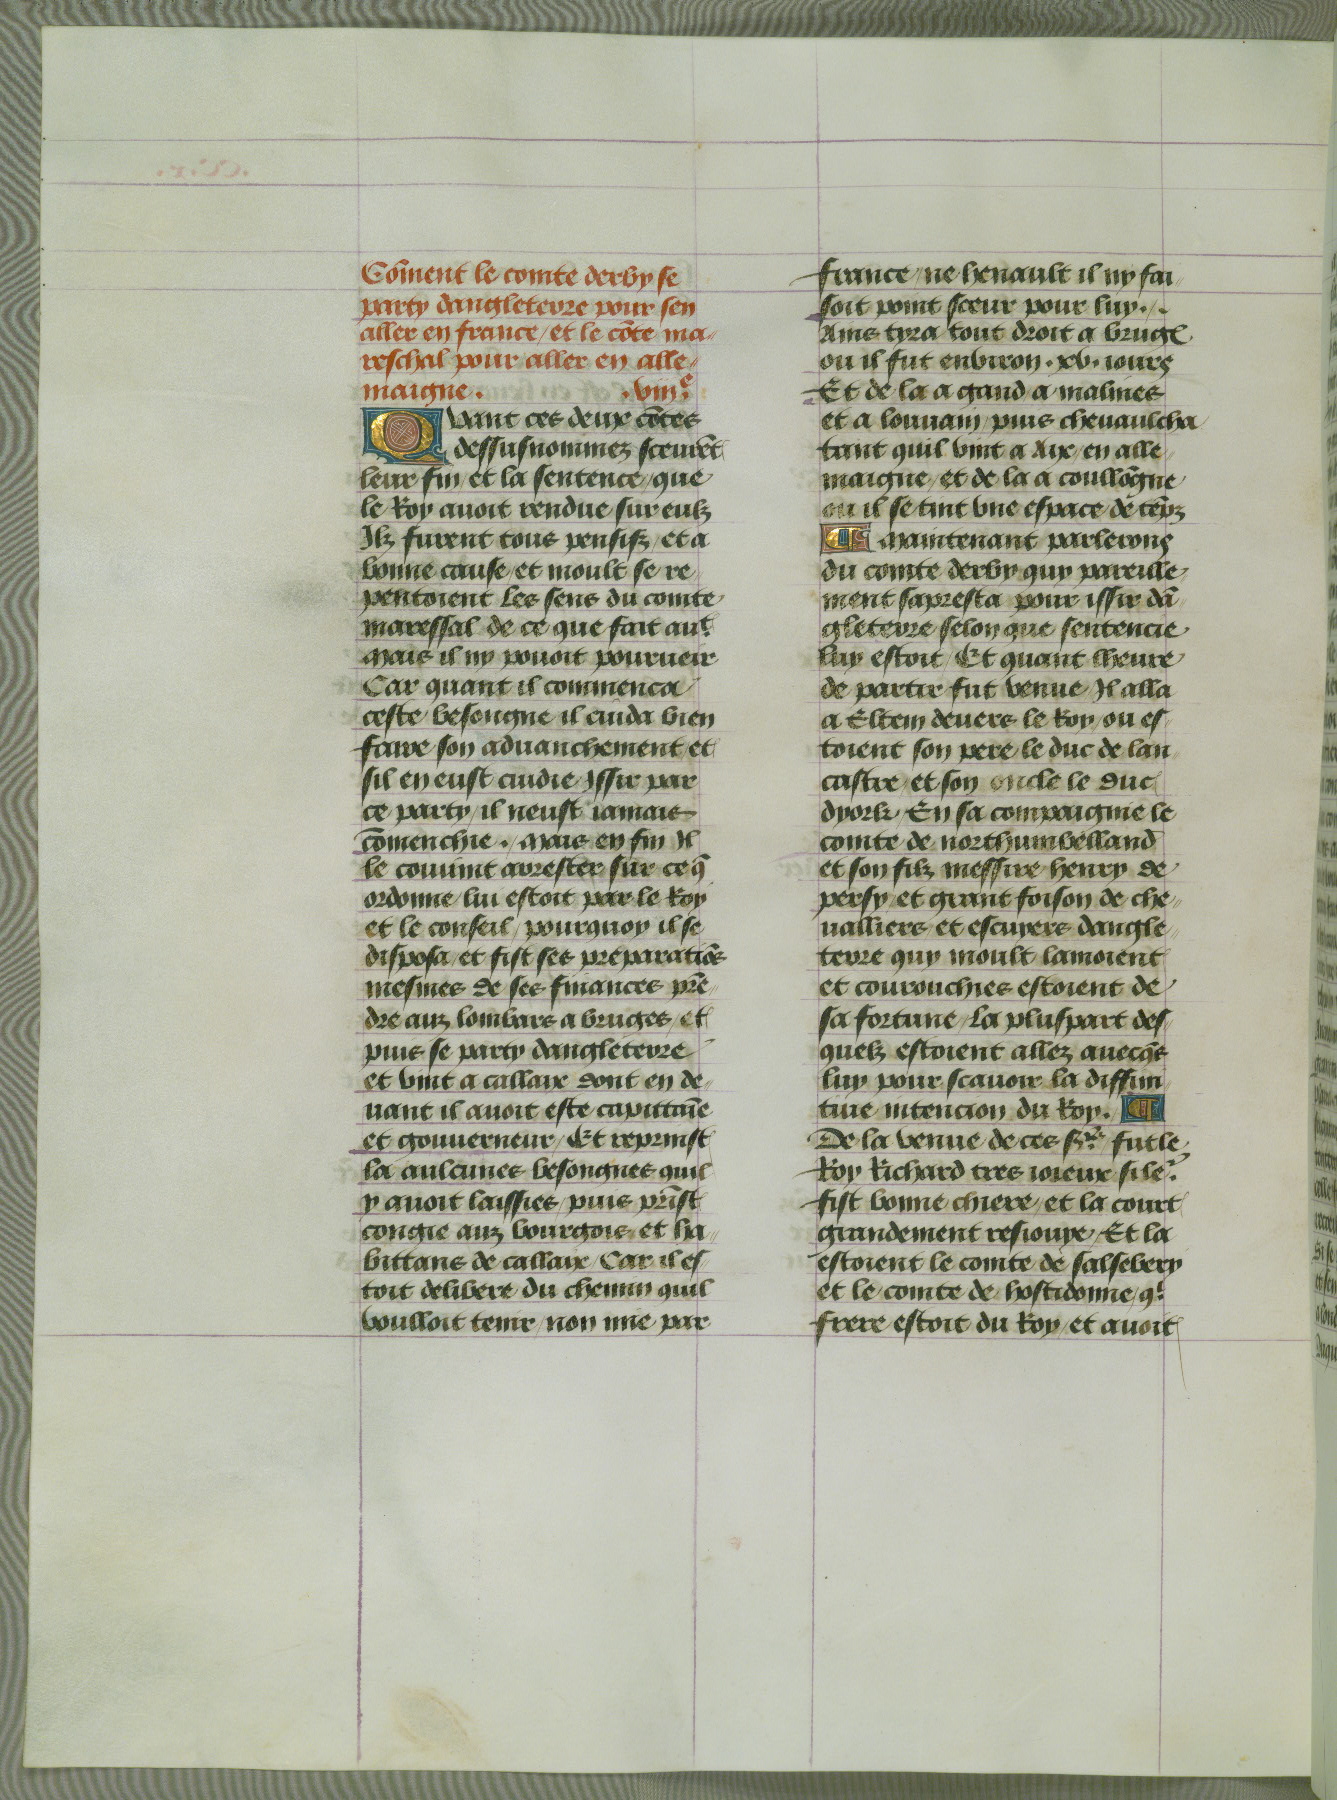 Cõment le comte derby se
party dangleterre pour sen
aller en france / et le cõte ma-
reschal pour aller en alle-
maigne. .viiie.
Quant ces deux cõtes
dessusnommez sceurẽt
leur fin / et la sentence / que
le Roy auoit rendue sur eulz
Ilz furent tous pensifz / et a
bonne cause / et moult se re
pentoient les gens du comte
maressal de ce que fait aut
Mais il ny pouoit pourueir
Car quant il commenca
ceste besongne il cuida bien
faire son aduanchement et
sil en eust cuidie Issir par
ce party / il neust iamais
cõmenchie . Mais en fin Il
le couuint arrester sur ce q̃
ordonne lui estoit par le Roy
et le conseil / pourquoy il se
disposa / et fist ses preparatiõs
mesmes de ses finances prẽ-
dre aux lombars a bruges / et
puis se party dangleterre
et vint a callaix dont en de-
uant il auoit este capittaĩe
et gouuerneur / Et reprinst
la aulcunes besongnes quil
y auoit laissies / puis prĩst
congie aux bourgois / et ha-
bittans de callaix Car il es
toit delibere du chemin quil
voulloit tenir / non mie par
france / ne henault il ny fai
soit point sceur pour luy .
Ains tyra tout droit a brugꝭ
ou il fut enuiron .xv. iours
Et de la a gand a malines
et a louuain / puis cheuaulcha
tant quil vint a Aix en alle
maigne / et de la a coullõgne
ou il se tint vne espace de tẽps
¶ Maintenant parlerons
du comte derby quy pareille-
ment sapresta pour issir dã
gleterre selon que sentencie
luy estoit / Et quant lheure
de partir fut venue Il alla
a Eltem deuers le Roy / ou es
toient son pere / le duc de lan
castre / et son oncle le duc
dyork / En sa compaignie le
comte de northumbelland
et son filz messire henry de
persy / et grant foison de che-
ualliers et escuyers dangle-
terre quy moult lamoient
et courouchies estoient de
sa fortune / La pluspart des
quelz estoient allez auecq̃s
luy pour scauoir la diffini
tiue intencion du Roy. ¶
De la venue de ces srs fut le
Roy Richard tres ioieux si leʳ
fist bonne chiere / et la court
grandement resiouye / Et la
estoient le comte de salsebery
et le comte de hostidonne / qⁱ
frere estoit du Roy / et auoit